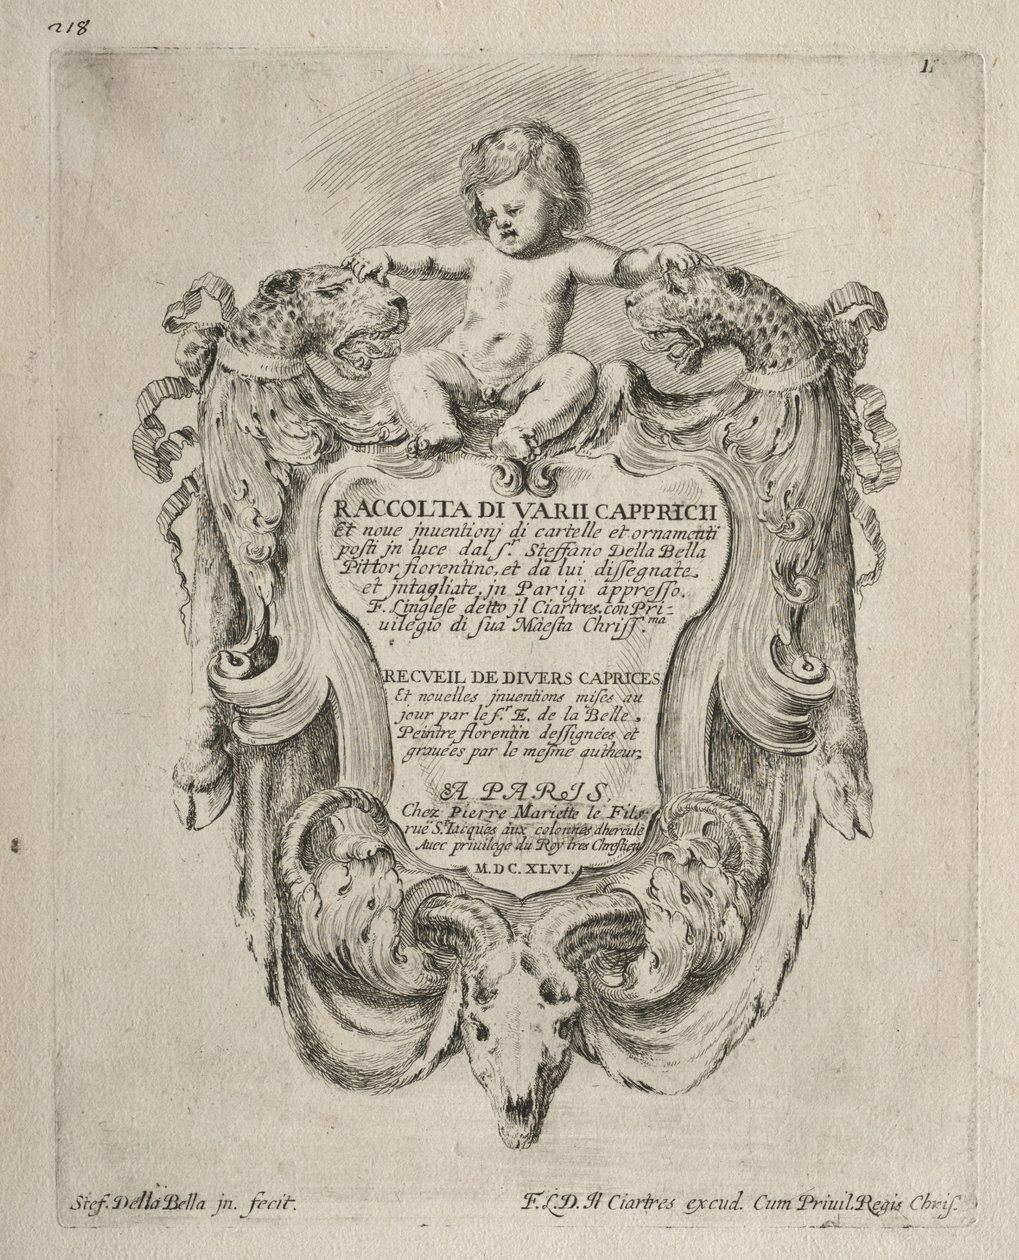 218
1.
RACCOLTA DI VARII CAPPRICII
Et noue jnuentionj di cartelle et ornamenti
posti jn luce dal s.r Steffano Della Bella
Pittor fiorentino, et da lui dissegnate
et jntagliate, jn Parigi appresso.
F. L'inglese detto jl Ciartres. con Pri-
uilegio di sua Maesta Chriss.ma
RECVEIL DE DIVERS CAPRICES
Et nouelles jnuentions mises au
jour par le s.r E. de la Belle
Peintre florentin dessignées et
grauées par le mesme autheur,
A PARIS
Chez Pierre Mariette le Fils
rue St. Iacques aux colonnes d'hercule
Auec priuilege du Roy tres Chrestien
M. DC. XLVI.
Stef. Della Bella jn. fecit.
F. L. D. Il Ciartres excud. Cum Priuil. Regis Chris.